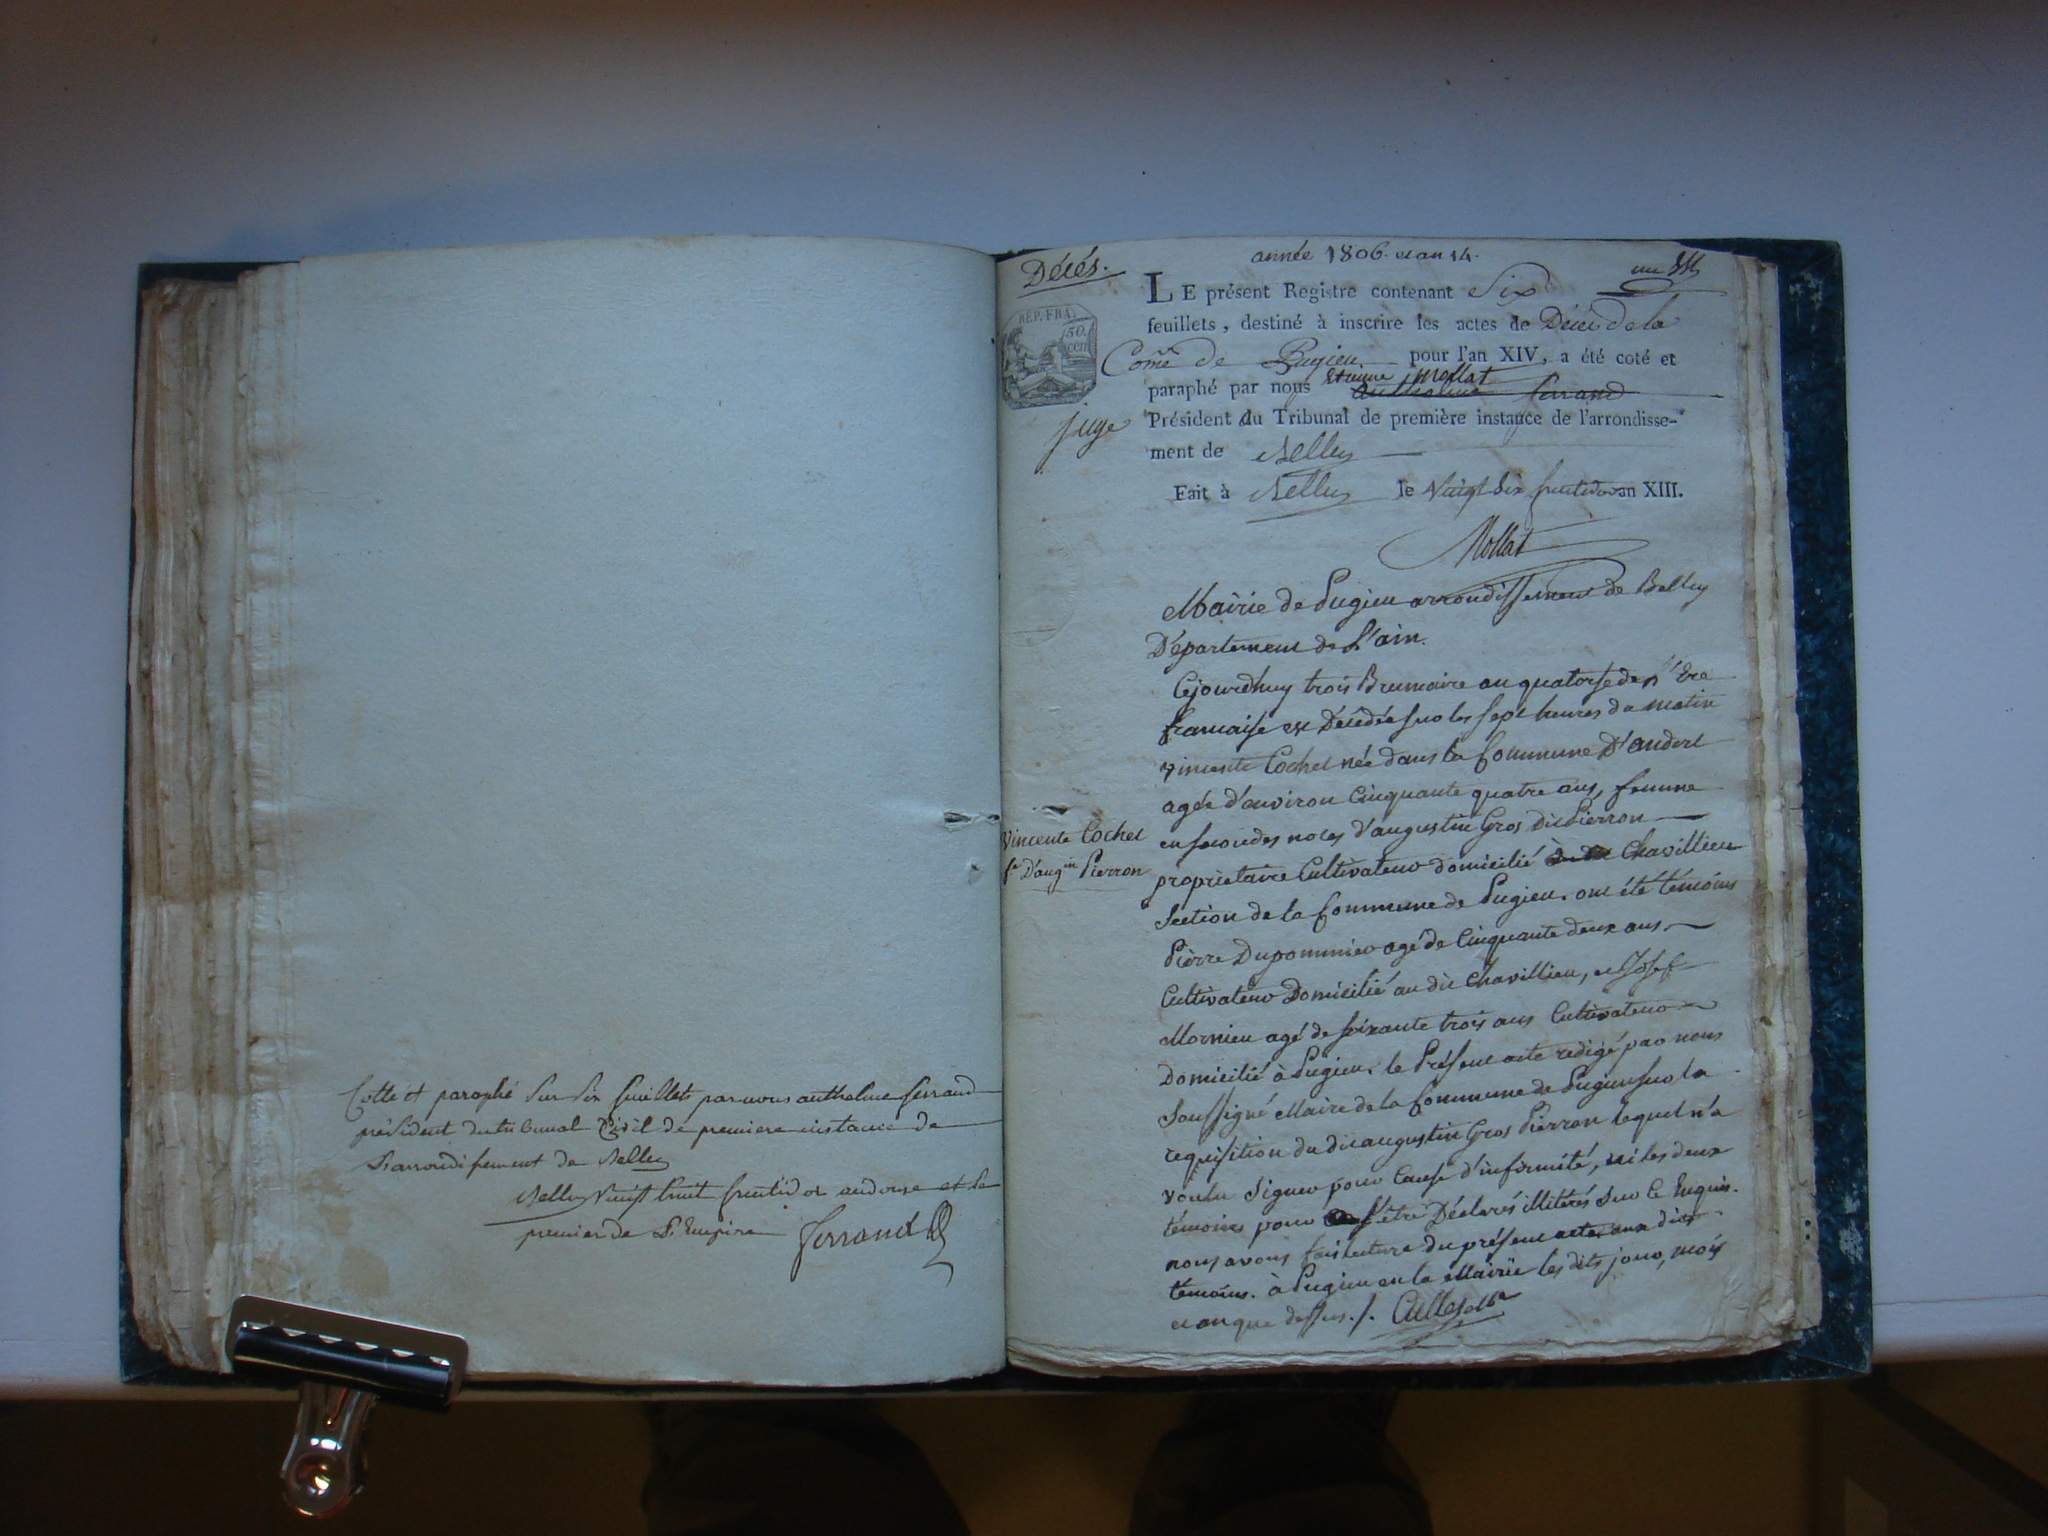 Cotté et paraphé sur six feuillets par nous anthelme ferrand
président du tribunal Civil de premiere instance de
L'arrondissement de Belley
Belley vingt huit fructidor an douze et le
premier de L'Empire ferrand
Décés.
année 1806. et an 14.
REP. FRA.
50.
cen
LE présent Registre contenant Six
feuillets, destiné à inscrire les actes de Décès de la
Com.e de Pugieu pour l'an XIV, a été coté et
Etienne Mollat
paraphé par nous anthelme ferrand
juge
Président du Tribunal de première instance de l'arrondisse-
ment de Belley
Fait à Belley le Vingt Six fructidor an XIII.
Mollat
Mairie de Pugieu arrondissement de Belley
Département de L'ain.
Cejourdhuy trois Brumaire an quatorze de l'Ere
francaise est Décédée sur les sept heures du matin
vincente Cochet née dans la Commune D'andert
agée d'environ Cinquante quatre ans, femme
en secondes noces d'augustin Gros dit Pierron
Vincente Cochet
fe D'augin Pierron
proprietaire Cultivateur domicilié Chavillieu
Section de la Commune de Pugieu. ont été témoins
Pierre Dupommier agé de Cinquante deux ans
Cultivateur Domicilié au dit Chavillieu, et Josef
Mornieu agé de soixante trois ans Cultivateur
Domicilié à Pugieu. le Présent acte redigé par nous
Soussigné Maire de la Commune de Pugieu sur la
requisition du dit augustin Gros Pierron lequel n'a
voulu signer pour Cause d'infirmité, ni les deux
témoins pour s'être Déclarés illiterés sur Ce Enquis.
nous avons fait lecture du présent acte aux dits
témoins. à Pugieu en la Mairie les dits jour, mois
et an que dessus./.